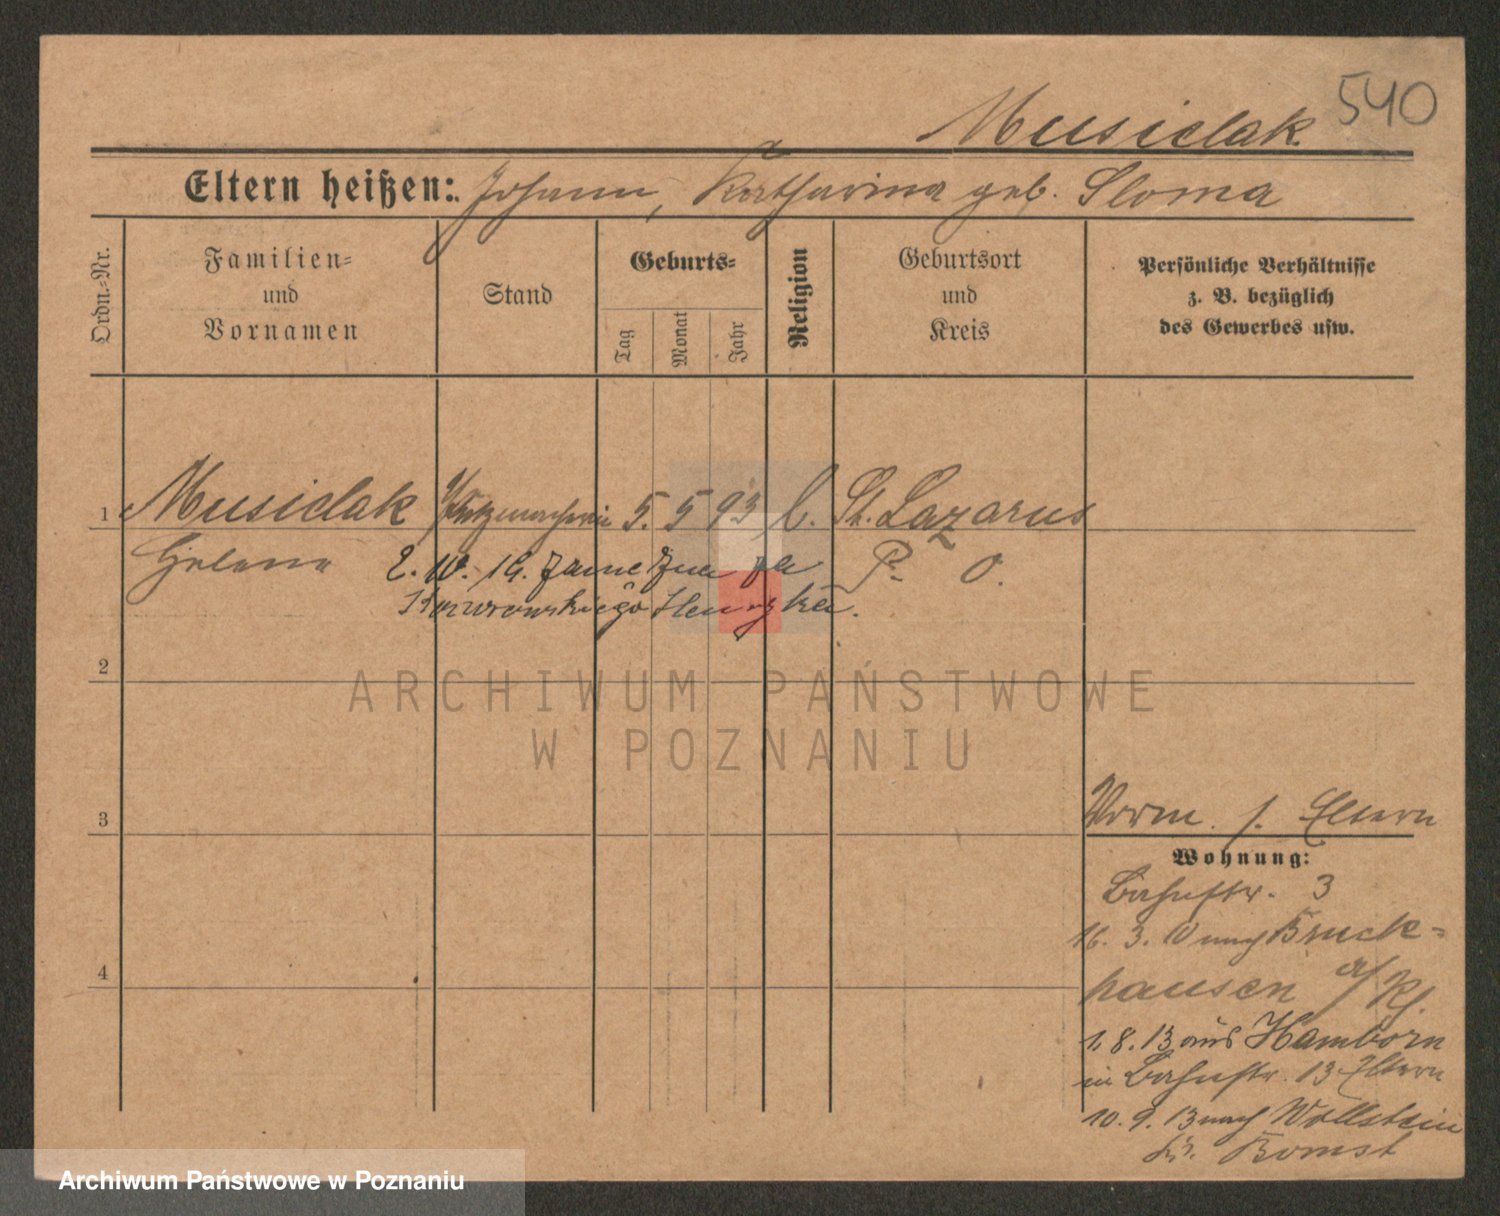 540
Musielak
Eltern heißen: Johann, Katharina geb. Sloma
Ordn.-Nr.
Familien-
und
Vornamen
Stand
Geburts-
Tag
Monat
Jahr
Religion
Geburtsort
und
Kreis
Persönliche Verhältnisse
z. B. bezüglich
des Gewerbes usw.
1 Musielak Putzmacherin 5. 5 93 St. Lazarus
Helena 2. 10. 19. zamężna za P. O.
2
3
4
ARCHIWUM PAŃSTWOWE
W POZNANIU
Vorm. s. Eltern
Wohnung:
Bahnstr. 3
16. 3. 10 nach Bruck-
hausen a/Rh.
1. 8. 13 aus Hamborn
in Bahnstr. 13 Eltern
10. 9. 13 nach Wollstein
Kr. Bomst
Archiwum Państwowe w Poznaniu